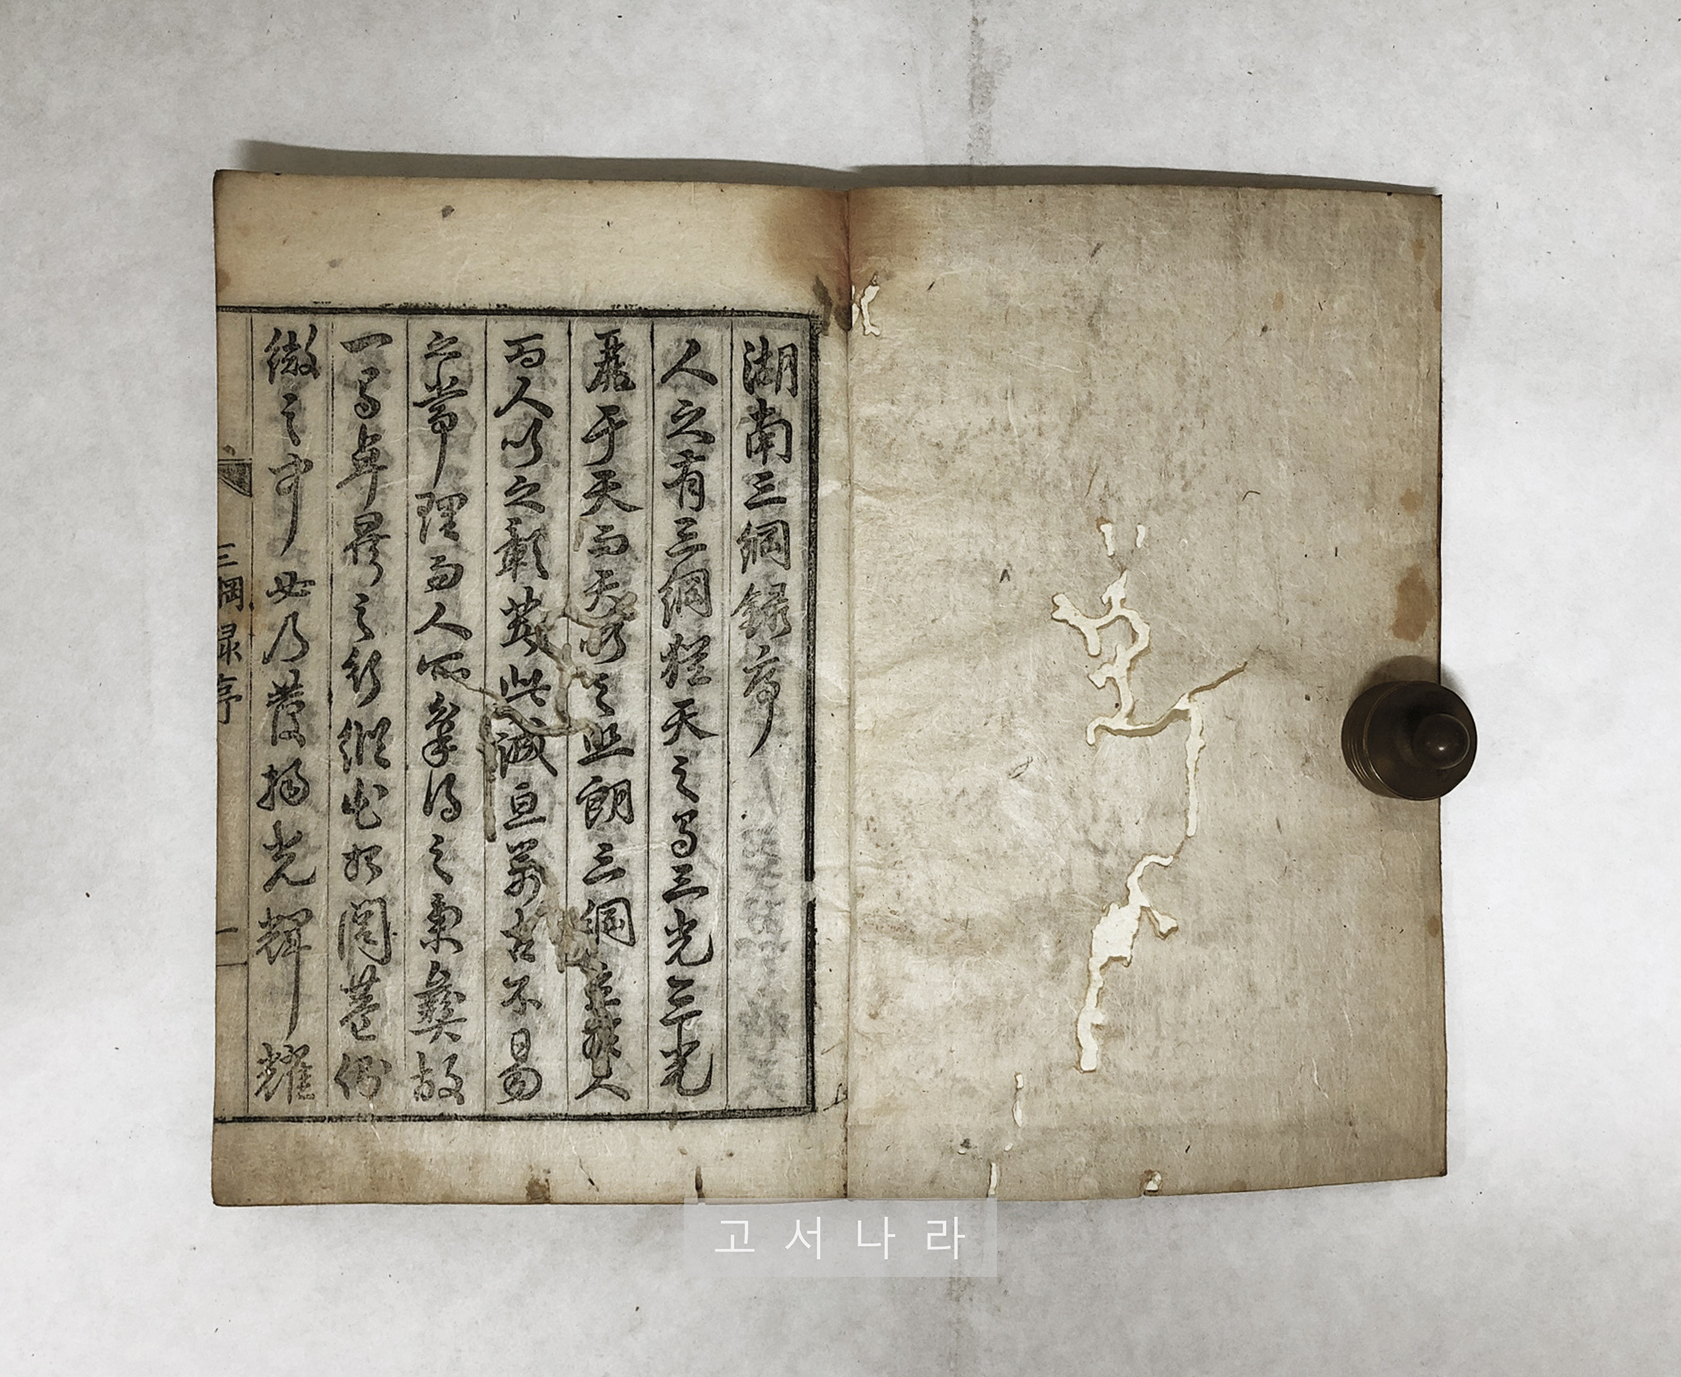 湖南三綱錄序
人之有三綱猶天之有三光三光
麗于天而天以之照朗三綱立於人
而人以之彰其誠亘萬古不易
之常理而人所受得之秉彝故
一有卓異之行縱出於閭巷側
微之中必乃發揚光輝耀
三綱录序
一
고서나라